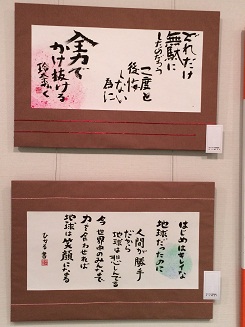 どれだけ
無駄に
したのだろう
二度と
後悔
しない
為に
全力で
かけ抜ける
はじめはキレイな
地球だったのに
人間が勝手
だから
地球は悲しんでる
今世界中のみんなで
力を合わせれば
地球は笑顔になる
ひかる書